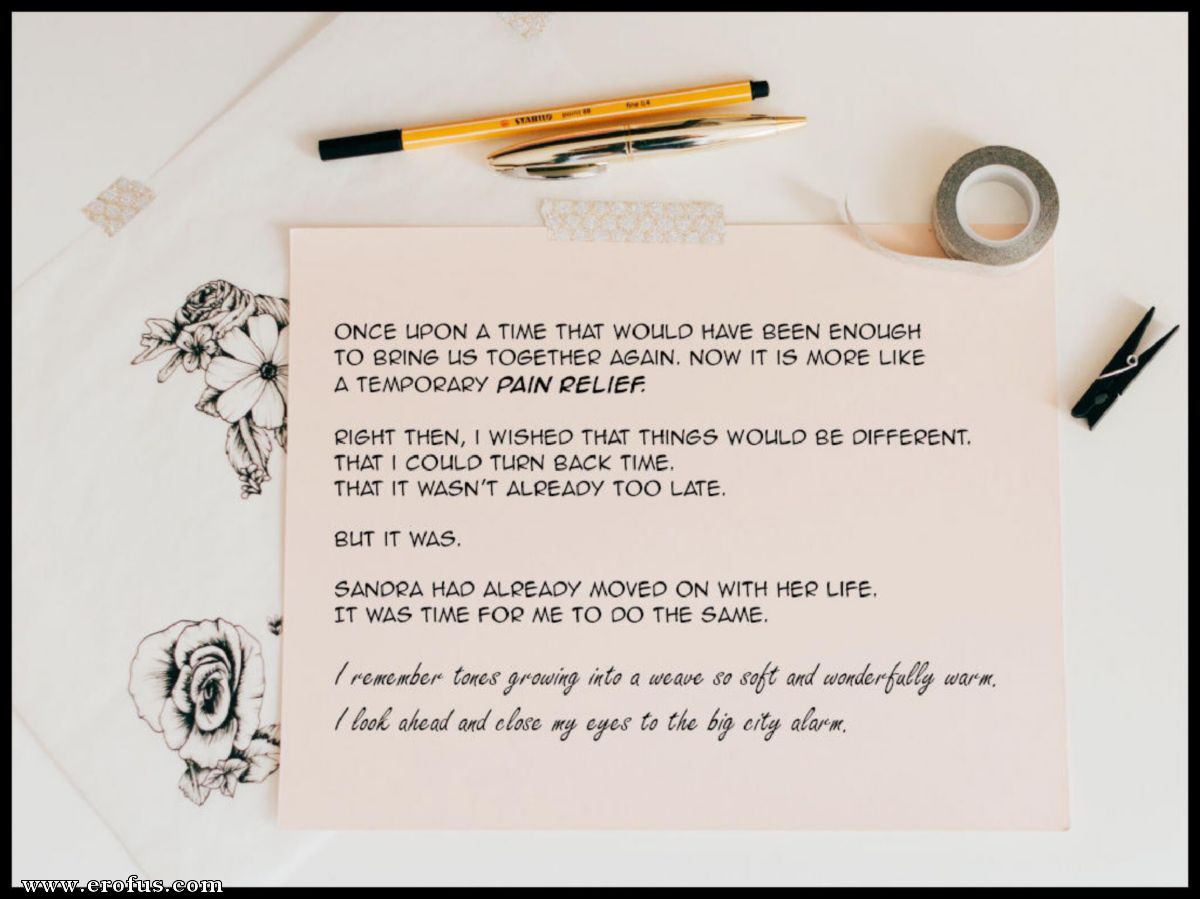 STABILO point 88 fine 0,4
ONCE UPON A TIME THAT WOULD HAVE BEEN ENOUGH
TO BRING US TOGETHER AGAIN. NOW IT IS MORE LIKE
A TEMPORARY PAIN RELIEF.
RIGHT THEN, I WISHED THAT THINGS WOULD BE DIFFERENT.
THAT I COULD TURN BACK TIME.
THAT IT WASN'T ALREADY TOO LATE.
BUT IT WAS.
SANDRA HAD ALREADY MOVED ON WITH HER LIFE.
IT WAS TIME FOR ME TO DO THE SAME.
I remember tones growing into a weave so soft and wonderfully warm.
I look ahead and close my eyes to the big city alarm.
www.erofus.com